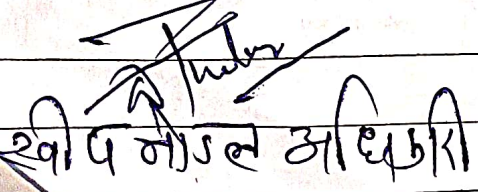 स्वीप नोडल अधिकारी